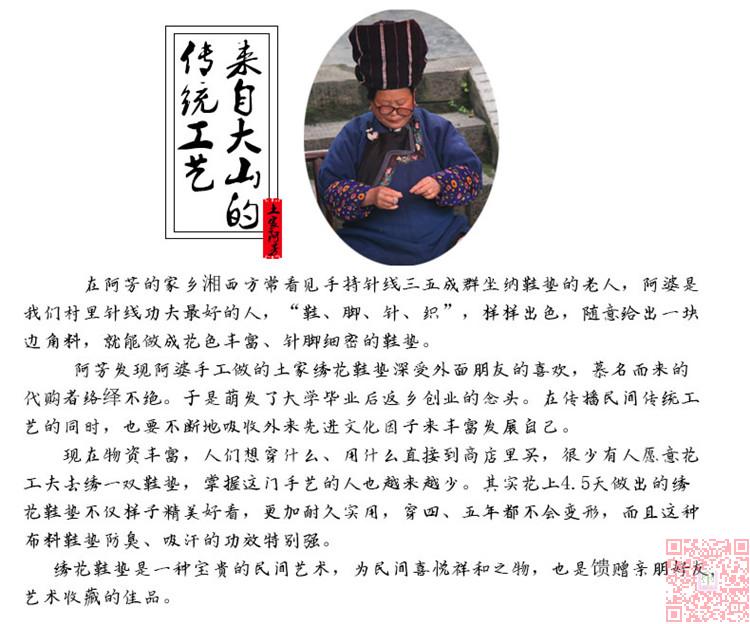 来自大山的
传统工艺
土家阿芳
在阿芳的家乡湘西方常看见手持针线三五成群坐纳鞋垫的老人，阿婆是
我们村里针线功夫最好的人，“鞋、脚、针、织”，样样出色，随意给出一块
边角料，就能做成花色丰富、针脚细密的鞋垫。
阿芳发现阿婆手工做的土家绣花鞋垫深受外面朋友的喜欢，慕名而来的
代购者络绎不绝。于是萌发了大学毕业后返乡创业的念头。在传播民间传统工
艺的同时，也要不断地吸收外来先进文化因子来丰富发展自己。
现在物资丰富，人们想穿什么、用什么直接到商店里买，很少有人愿意花
工夫去绣一双鞋垫，掌握这门手艺的人也越来越少。其实花上4.5天做出的绣
花鞋垫不仅样子精美好看，更加耐久实用，穿四、五年都不会变形，而且这种
布料鞋垫防臭、吸汗的功效特别强。
绣花鞋垫是一种宝贵的民间艺术，为民间喜悦祥和之物，也是馈赠亲朋好友，
艺术收藏的佳品。